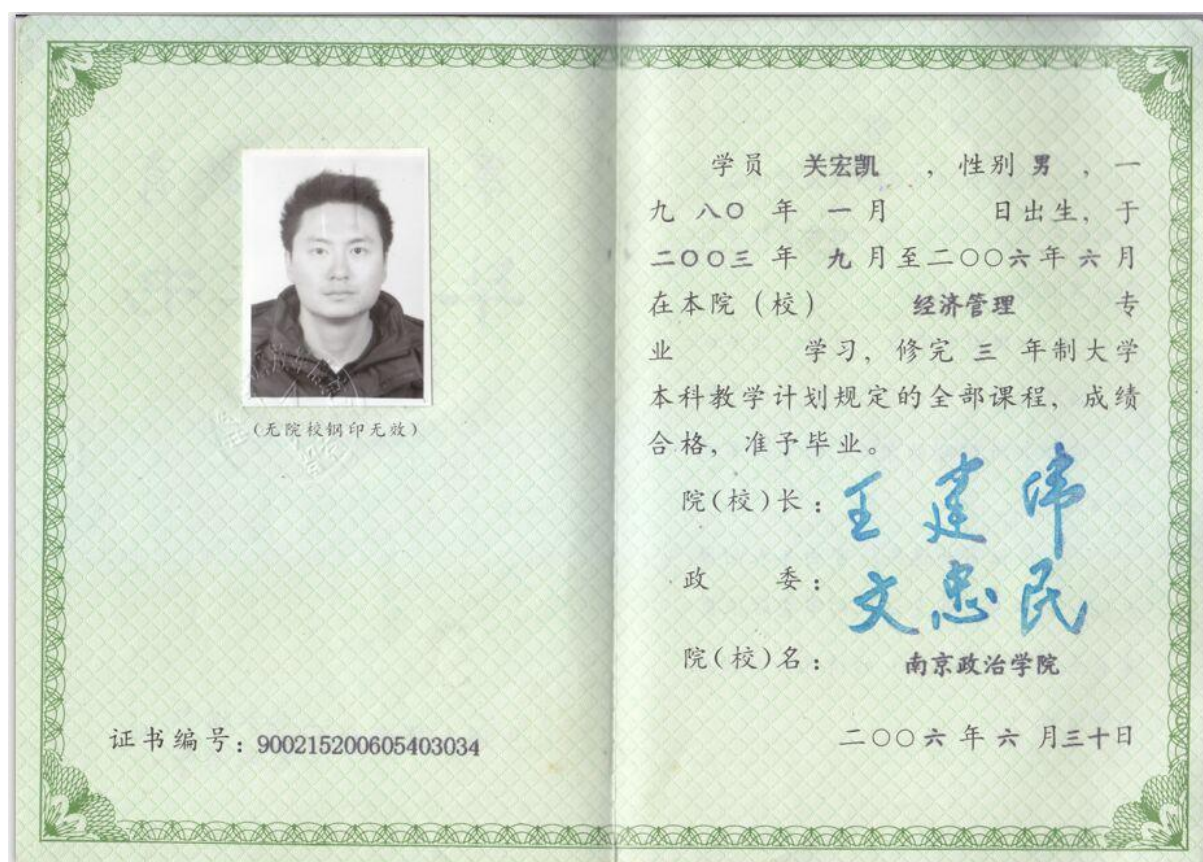 (无院校钢印无效)
证书编号:900215200605403034
学员 关宏凯 ,性别 男 ,一
九 八〇 年 一 月 日出生,于
二〇〇三 年 九 月至二〇〇六年 六 月
在本院(校) 经济管理 专
业 学习,修完 三 年制大学
本科教学计划规定的全部课程,成绩
合格,准予毕业。
院(校)长:王建伟
政 委:文忠民
院(校)名:南京政治学院
二〇〇六 年 六 月三十日